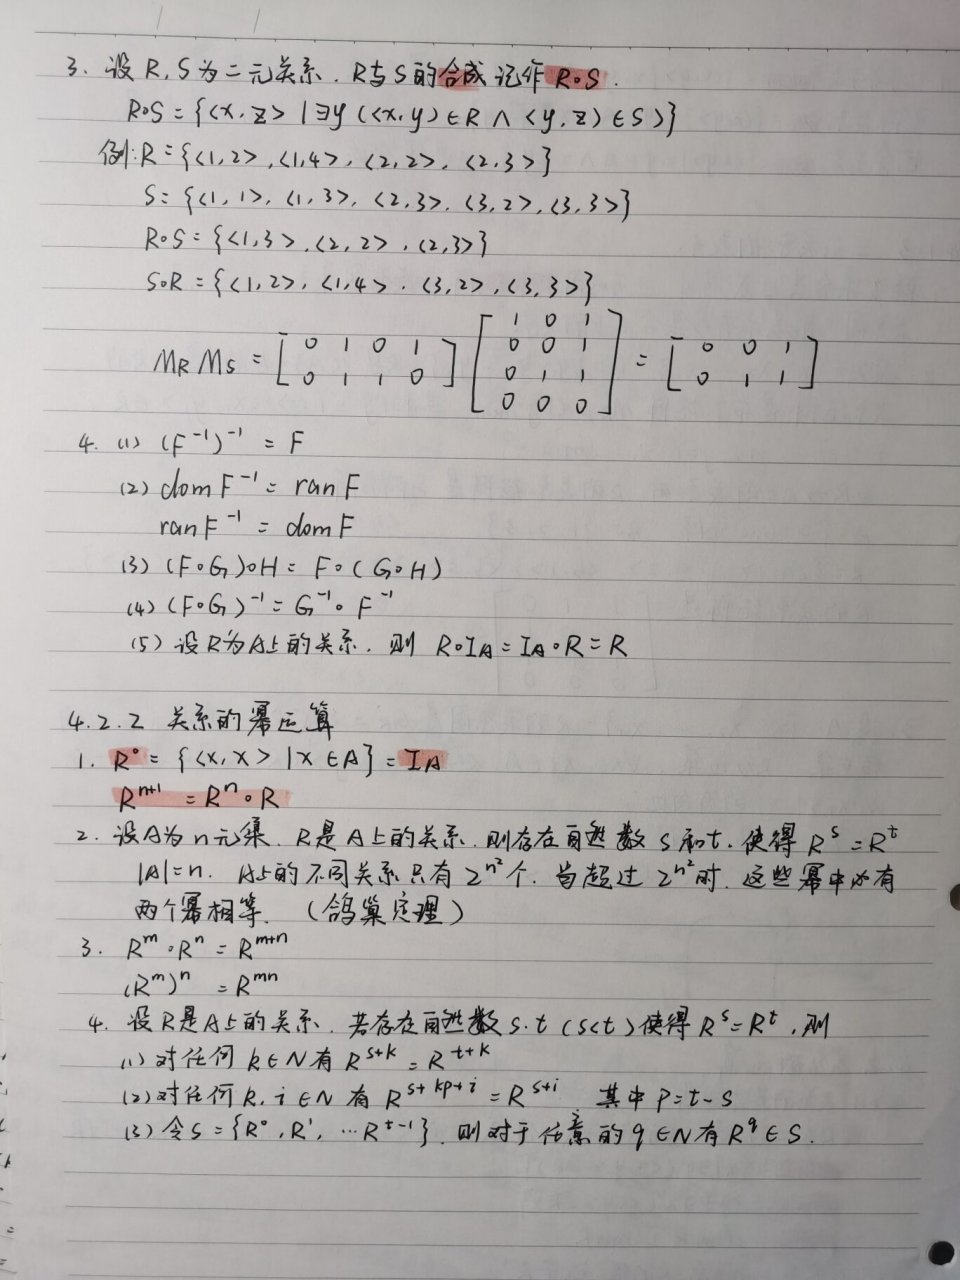 3. 设R,S为二元关系. R与S的合成记作R∘S.
R∘S = {<x,z> | ∃y (<x,y>∈R ∧ <y,z>∈S)}
例: R = {<1,2>, <1,4>, <2,2>, <2,3>}
S = {<1,1>, <1,3>, <2,3>, <3,2>, <3,3>}
R∘S = {<1,3>, <2,2>, <2,3>}
S∘R = {<1,2>, <1,4>, <3,2>, <3,3>}
M_R M_S = [0 1 0 1; 0 1 1 0] [1 0 1; 0 0 1; 0 1 1; 0 0 0] = [0 0 1; 0 1 1]
4. (1) (F⁻¹)⁻¹ = F
(2) dom F⁻¹ = ran F
ran F⁻¹ = dom F
(3) (F∘G)∘H = F∘(G∘H)
(4) (F∘G)⁻¹ = G⁻¹∘F⁻¹
(5) 设R为A上的关系. 则 R∘I_A = I_A∘R = R
4.2.2 关系的幂运算
1. R⁰ = {<x,x> | x∈A} = I_A
Rⁿ⁺¹ = Rⁿ∘R
2. 设A为n元集. R是A上的关系. 则存在自然数s和t. 使得 Rˢ = Rᵗ
|A|=n. A上的不同关系只有 2^n² 个. 当超过 2^n² 时. 这些幂中必有
两个幂相等. (鸽巢定理)
3. Rᵐ∘Rⁿ = Rᵐ⁺ⁿ
(Rᵐ)ⁿ = Rᵐⁿ
4. 设R是A上的关系. 若存在自然数s.t (s<t) 使得 Rˢ=Rᵗ, 则
(1) 对任何 k∈N 有 Rˢ⁺ᵏ = Rᵗ⁺ᵏ
(2) 对任何 k, i∈N 有 Rˢ⁺ᵏᵖ⁺ⁱ = Rˢ⁺ⁱ 其中 p=t-s
(3) 令 S = {R⁰, R¹, …Rᵗ⁻¹}. 则对于任意的 q∈N 有 R^q∈S.